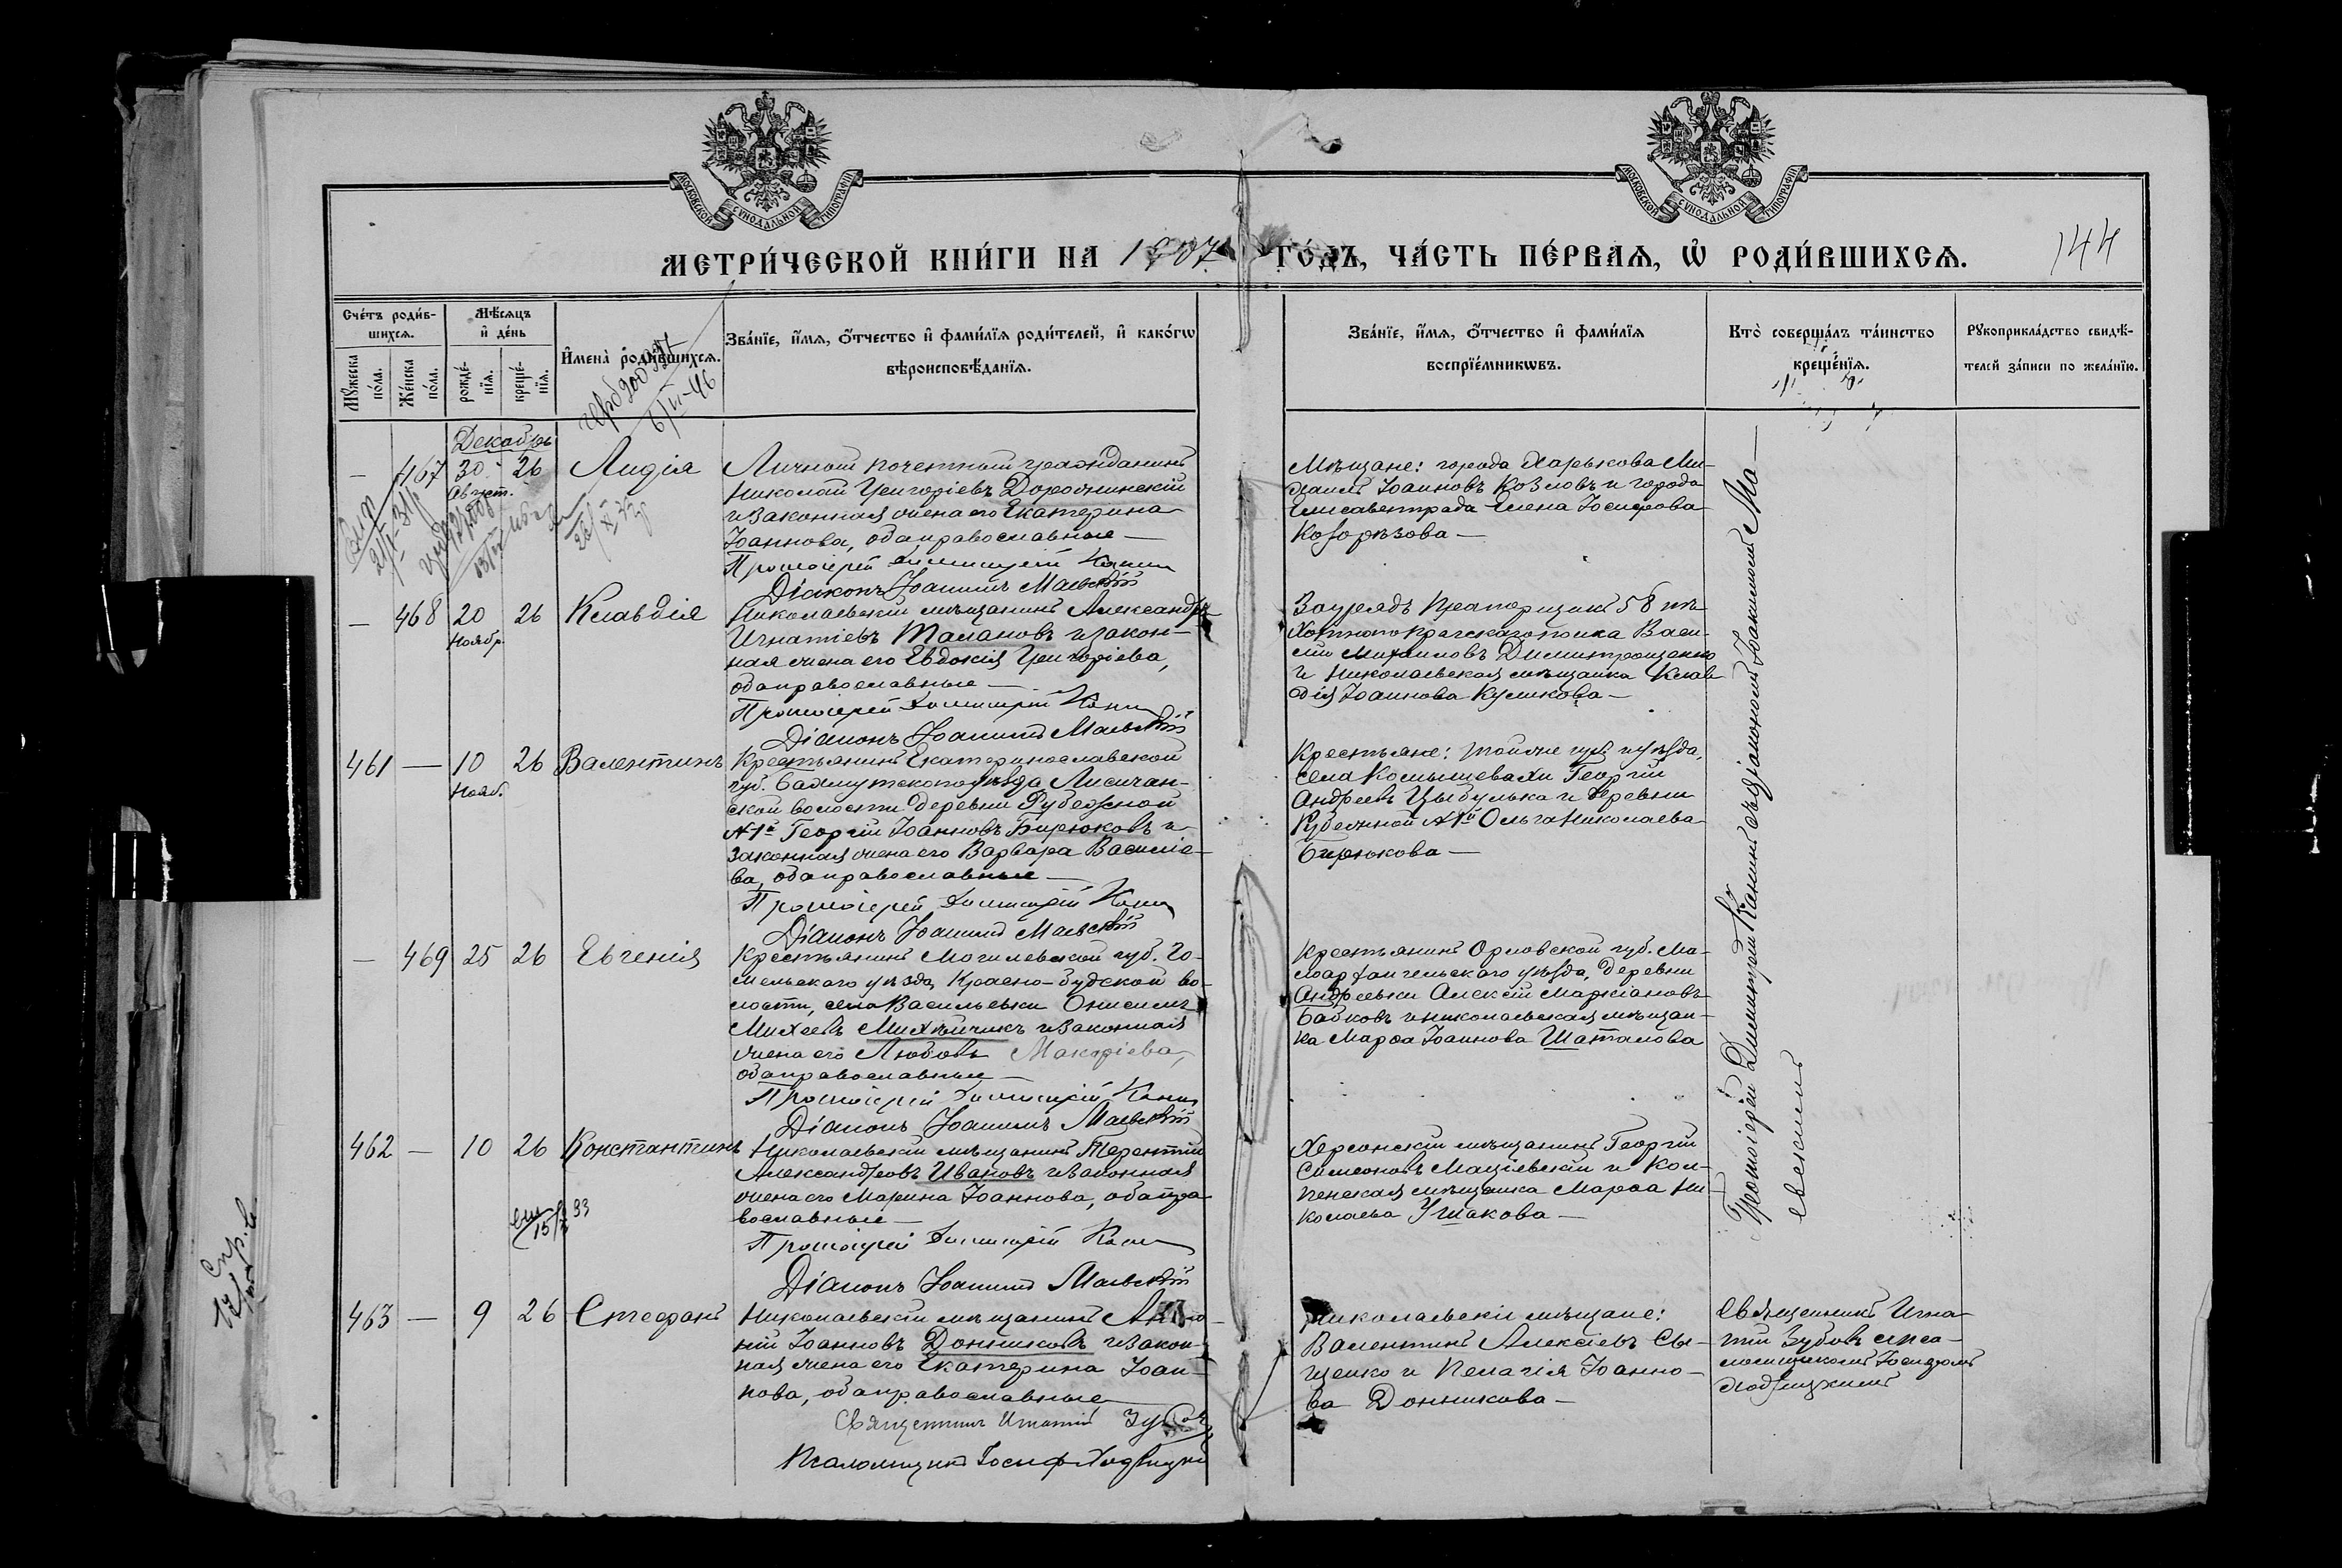 МОСКОВСКОЙ СѴНОДАЛЬНОЙ ТИПОГРАФІИ
МОСКОВСКОЙ СѴНОДАЛЬНОЙ ТИПОГРАФІИ
МЕТРИ́ЧЕСКОЙ КНИ́ГИ НА 1907 ГО́ДЪ, ЧА́СТЬ ПЕ́РВАѦ, Ѡ҆ РОДИ́ВШИХСѦ.
144
Сче́тъ роди́в-
шихсѧ.
Мѹ́жеска по́ла.
Же́нска по́ла.
Мѣ́сѧцъ и҆ де́нь
рожде́-
нїѧ.
креще́-
нїѧ.
И҆мена̀ роди́вшихсѧ.
Зва́нїе, и҆́мѧ, ѻ҆́тчество и҆ фами́лїѧ роди́телей, и҆ како́гѡ
вѣроисповѣ́данїѧ.
Зва́нїе, и҆́мѧ, ѻ҆́тчество и҆ фами́лїѧ
воспрїе́мникѡвъ.
Кто̀ соверша́лъ та́инство
креще́нїѧ.
Рѹкоприкла́дство свидѣ́-
телей за́писи по жела́нїю.
Декабрь
— 467 30 26 Лидія
Август.
Личный почетный гражданинъ
Николай Григоріевъ Дорошинскій
и законная жена его Екатерина
Іоаннова, оба православные —
Протоіерей Димитрій Канин
Діаконъ Іоаннъ Маевскій
Мѣщане: города Харькова Ми-
хаилъ Іоанновъ Козловъ и города
Елисаветграда Елена Іосифова
Козорѣзова —
— 468 20 26 Клавдія
Ноябр.
Николаевскій мѣщанинъ Александръ
Игнатіевъ Талановъ и закон-
ная жена его Евдокія Григоріева,
оба православные —
Протоіерей Димитрій Канин
Діаконъ Іоаннъ Маевскій
Зауряд Прапорщикъ 58 пѣ-
хотного Прагскаго полка Васи-
лій Михаиловъ Димитрощенко
и Николаевская мѣщанка Клав-
дія Іоаннова Куликова —
461 — 10 26 Валентинъ
Нояб.
Крестьянинъ Екатеринославской
губ. Бахмутского уѣзда Лисичан-
ской волости деревни Рубежной
№ 1й Георгій Іоанновъ Бирюковъ и
законная жена его Варвара Василіе-
ва, оба православные —
Протоіерей Димитрій Канин
Діаконъ Іоаннъ Маевскій
Крестьяне: той же губ. и уѣзда,
села Комышевахи Георгій
Андреевъ Цыбулька и деревни
Рубежной № 1й Ольга Николаева
Бирюкова —
— 469 25 26 Евгенія
Крестьянинъ Могилевской губ. Го-
мельскаго уѣзда, Красно-будской во-
лости, села Васильевки Онисимъ
Михеевъ Михѣичикъ и законная
жена его Любовь Макаріева,
оба православные —
Протоіерей Димитрій Канин
Діаконъ Іоаннъ Маевскій
Крестьянинъ Орловской губ. Ма-
лоархангельскаго уѣзда, деревни
Андреевки Алексій Маркіановъ
Бабковъ и николаевская мѣщан-
ка Марѳа Іоаннова Шаталова
462 — 10 26 Константинъ
Николаевскій мѣщанинъ Терентій
Александровъ Ивановъ и законная
жена его Марина Іоаннова, оба пра-
вославные —
Протоіерей Димитрій Канин
Діаконъ Іоаннъ Маевскій
Херсонскій мѣщанинъ Георгій
Симеоновъ Маціевскій и
мѣщанка Марѳа Ни-
колаева Ушакова —
463 — 9 26 Стефанъ
Николаевскій мѣщанинъ
Іоанновъ Донниковъ и закон-
ная жена его Екатерина Іоан-
нова, оба православные
Священникъ Игнатій Зубов
Псаломщикъ Іосиф
Николаевскіе мѣщане:
Валентинъ Алексіевъ Сы-
щенко и Пелагія Іоанно-
ва Донникова —
Протоіерей Димитрій Канинъ съ діакономъ Іоанномъ Ма-
евскимъ
Священникъ Игна-
тій Зубовъ с псa-
ломщикомъ Іосифомъ